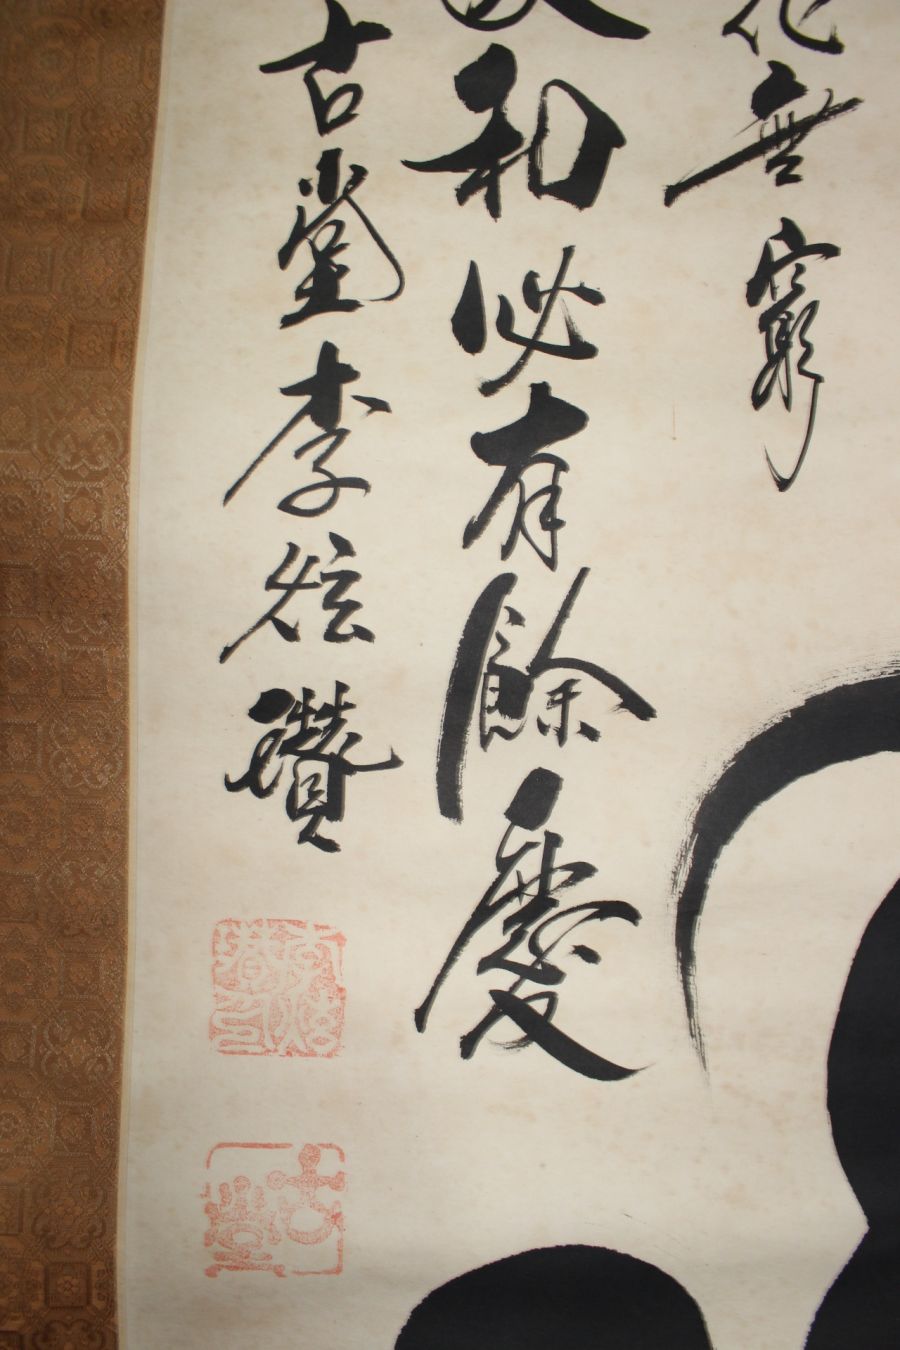 化無窮
和必有餘慶
古堂李炫讚
古堂